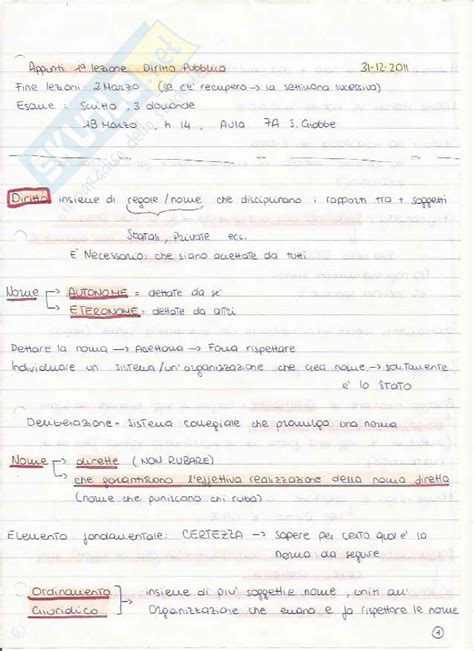 Appunti 1ª lezione Diritto Pubblico 31-12-2011
Fine lezioni 2 Marzo (se c'è recupero → la settimana successiva)
Esame: Scritto, 3 domande
13 Marzo, h 14, Aula 7A S. Giobbe
Diritto insieme di regole/norme che disciplinano i rapporti tra + soggetti
Statali, Private ecc.
E' Necessario: che siano accettate da tutti
Norme → AUTONOME = dettate da sé
→ ETERONOME = dettate da altri
Dettare la norma → Accettarla → Farla rispettare
Individuare un sistema/un'organizzazione che crea norme → solitamente
e' lo Stato
Deliberazione = sistema collegiale che promulga una norma
Norme → dirette (NON RUBARE)
→ che garantiscono l'effettiva realizzazione della norma diretta
(norme che puniscono chi ruba)
Elemento fondamentale: CERTEZZA → Sapere per certo qual è la
norma da seguire
Ordinamento → insieme di piu' soggetti e norme, uniti in un'
Giuridico → Organizzazione che emana e fa rispettare le norme
1
SKUOLA.net
il paradiso dello studente